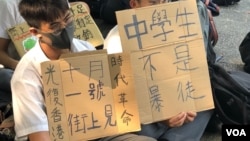 光復香港
十月
一號
街上見
時代革命
中學生
不是
暴徒
VOA